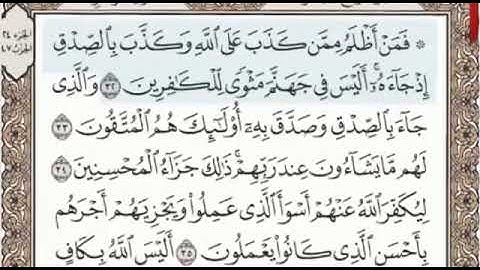 الجزء ٢٤
الحزب ٤٧
۞ فَمَنْ أَظْلَمُ مِمَّن كَذَبَ عَلَى ٱللَّهِ وَكَذَّبَ بِٱلصِّدْقِ
إِذْ جَآءَهُۥٓ ۚ أَلَيْسَ فِى جَهَنَّمَ مَثْوًى لِّلْكَٰفِرِينَ ٣٢ وَٱلَّذِى
جَآءَ بِٱلصِّدْقِ وَصَدَّقَ بِهِۦٓ أُو۟لَٰٓئِكَ هُمُ ٱلْمُتَّقُونَ ٣٣
لَهُم مَّا يَشَآءُونَ عِندَ رَبِّهِمْ ۚ ذَٰلِكَ جَزَآءُ ٱلْمُحْسِنِينَ ٣٤
لِيُكَفِّرَ ٱللَّهُ عَنْهُمْ أَسْوَأَ ٱلَّذِى عَمِلُوا۟ وَيَجْزِيَهُمْ أَجْرَهُم
بِأَحْسَنِ ٱلَّذِى كَانُوا۟ يَعْمَلُونَ ٣٥ أَلَيْسَ ٱللَّهُ بِكَافٍ